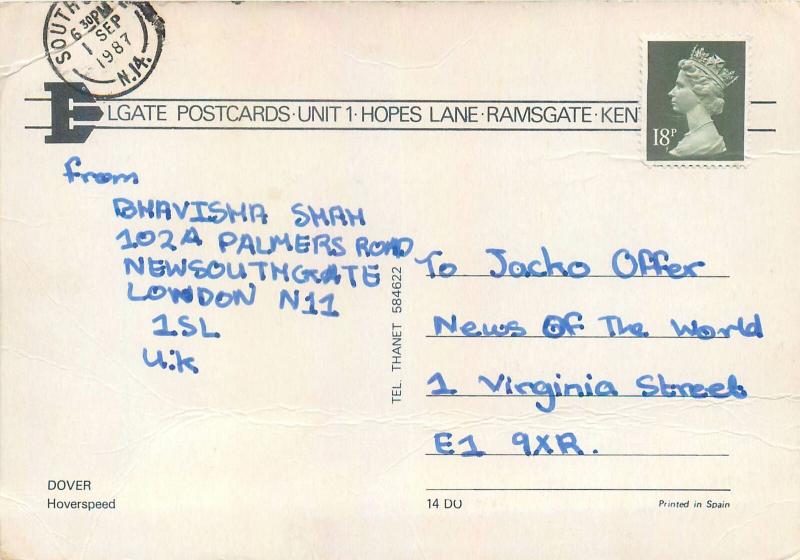 SOUTH
6 30PM
1 SEP
1987
N.14.
ELGATE POSTCARDS·UNIT 1·HOPES LANE·RAMSGATE·KEN
18P
from
BHAVISHA SHAH
102A PALMERS ROAD
NEWSOUTHGATE
LONDON N11
1SL
U.K
TEL. THANET 584622
To Jacko Offer
News Of The World
1 Virginia Street
E1 9XR.
DOVER
Hoverspeed
14 DO
Printed in Spain